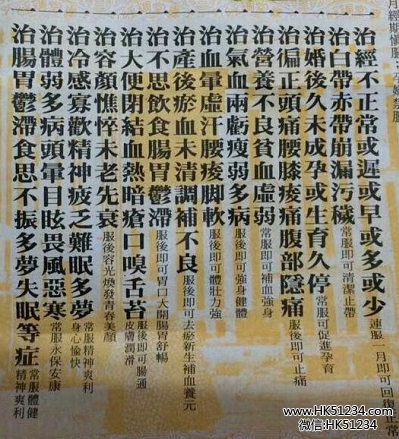 月經期懷服．孕婦禁服
治經不正常或遲或早或多或少 連服一月即可回復正常
治白帶赤帶崩漏污穢 常服即可清潔止帶
治婚後久未成孕或生育久停 常服可促進孕育
治徧正頭痛腰膝痠痛腹部隱痛 服後即可止痛
治營養不良貧血虛弱 常服即可補血強身
治氣血兩虧瘦弱多病 服後即可強身健體
治血暈虛汗腰痠脚軟 服後即可體壯力強
治產後瘀血未清調補不良 服後即可去瘀新生補血養元
治不思飲食腸胃鬱滯 服後即可胃口大開腸胃舒暢
治大便閉結血熱暗瘡口嗅舌苔 服後即可腸通皮膚潤滑
治容顏憔悴未老先衰 服後容光煥發青春美顏
治冷感寡歡精神疲乏難眠多夢 常服精神爽利身心愉快
治體弱多病頭暈目眩畏風惡寒 常服永保安康
治腸胃鬱滯食思不振多夢失眠等症 常服體健精神爽利
www.HK51234.com
微信:HK51234
www.HK51234.com